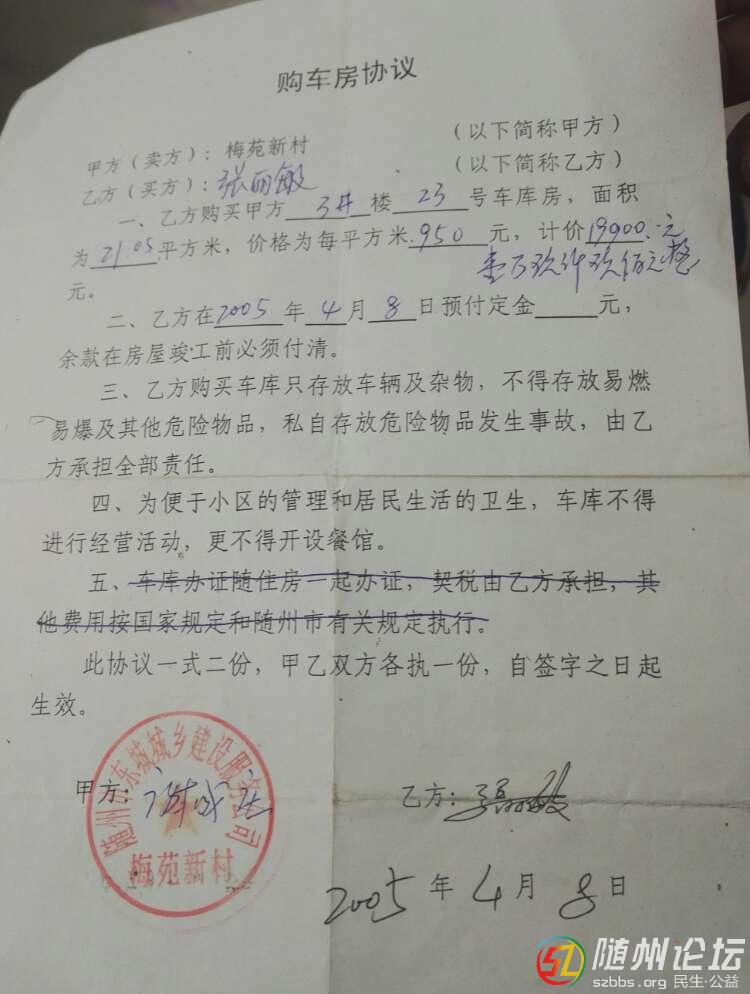 购车房协议
甲方（卖方）：梅苑新村 （以下简称甲方）
乙方（买方）：张丽敏 （以下简称乙方）
一、乙方购买甲方 3# 楼 23 号车库房，面积
为 21.05 平方米，价格为每平方米 950 元，计价 19900.元
元。 壹万玖仟玖佰元整
二、乙方在 2005 年 4 月 8 日预付定金 元，
余款在房屋竣工前必须付清。
三、乙方购买车库只存放车辆及杂物，不得存放易燃
易爆及其他危险物品，私自存放危险物品发生事故，由乙
方承担全部责任。
四、为便于小区的管理和居民生活的卫生，车库不得
进行经营活动，更不得开设餐馆。
五、车库办证随住房一起办证，契税由乙方承担，其
他费用按国家规定和随州市有关规定执行。
此协议一式二份，甲乙双方各执一份，自签字之日起
生效。
甲方： 乙方：张丽敏
梅苑新村
2005 年 4 月 8 日
随州论坛
szbbs.org 民生·公益